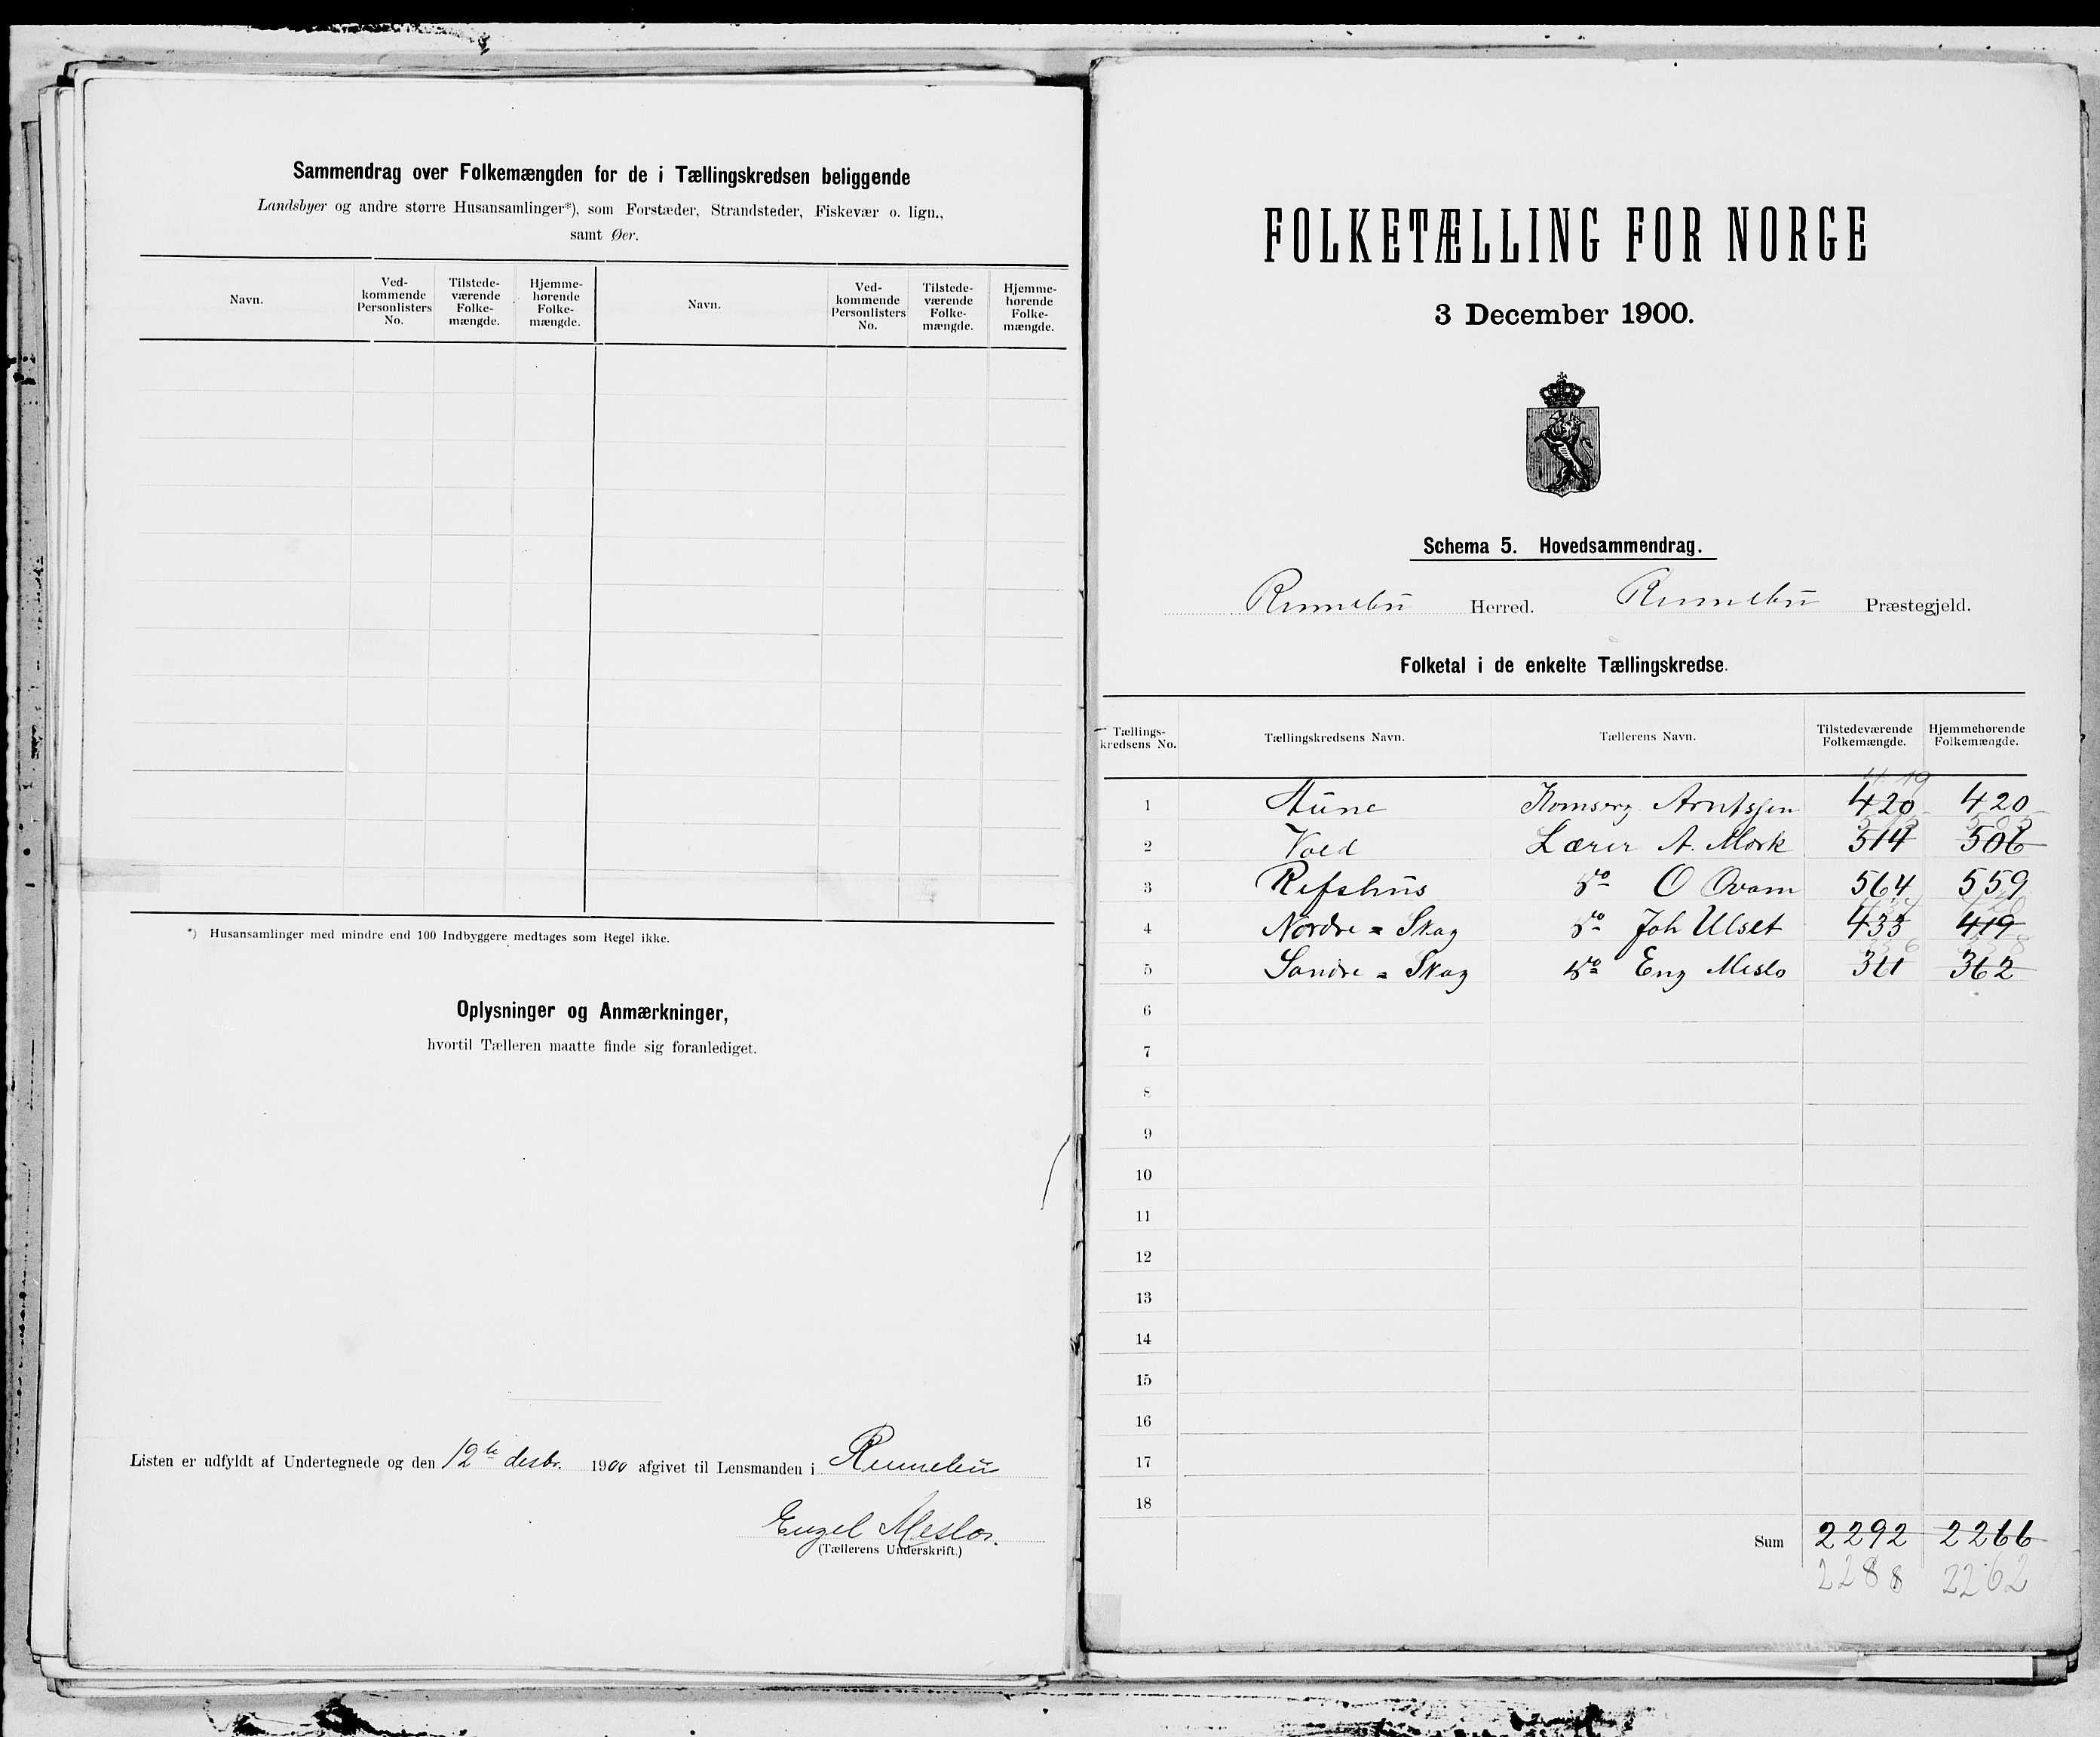 Sammendrag over Folkemængden for de i Tællingskredsen beliggende
Landsbyer og andre større Husansamlinger*), som Forstæder, Strandsteder, Fiskevær o. lign.,
samt Øer.
Navn. Ved-kommende Personlisters No. Tilstede-værende Folke-mængde. Hjemme-hørende Folke-mængde. Navn. Ved-kommende Personlisters No. Tilstede-værende Folke-mængde. Hjemme-hørende Folke-mængde.
*) Husansamlinger med mindre end 100 Indbyggere medtages som Regel ikke.
Oplysninger og Anmærkninger,
hvortil Tælleren maatte finde sig foranlediget.
Listen er udfyldt af Undertegnede og den 12te desbr. 1900 afgivet til Lensmanden i Rennebu
Engel Meslo.
(Tællerens Underskrift.)
FOLKETÆLLING FOR NORGE
3 December 1900.
Schema 5. Hovedsammendrag.
Rennebu Herred. Rennebu Præstegjeld.
Folketal i de enkelte Tællingskredse.
Tællings-kredsens No. Tællingskredsens Navn. Tællerens Navn. Tilstedeværende Folkemængde. Hjemmehørende Folkemængde.
419
1 Aune Arntsen 420 420
2 Vold Lærer A. Mork 514 506
3 Refshus do O Qvam 564 559
4 Nordre = Skog do Joh Ulset 433 419
5 Søndre = Skog do Eng Meslo 361 362
6
7
8
9
10
11
12
13
14
15
16
17
18
Sum 2292 2266
2288 2262